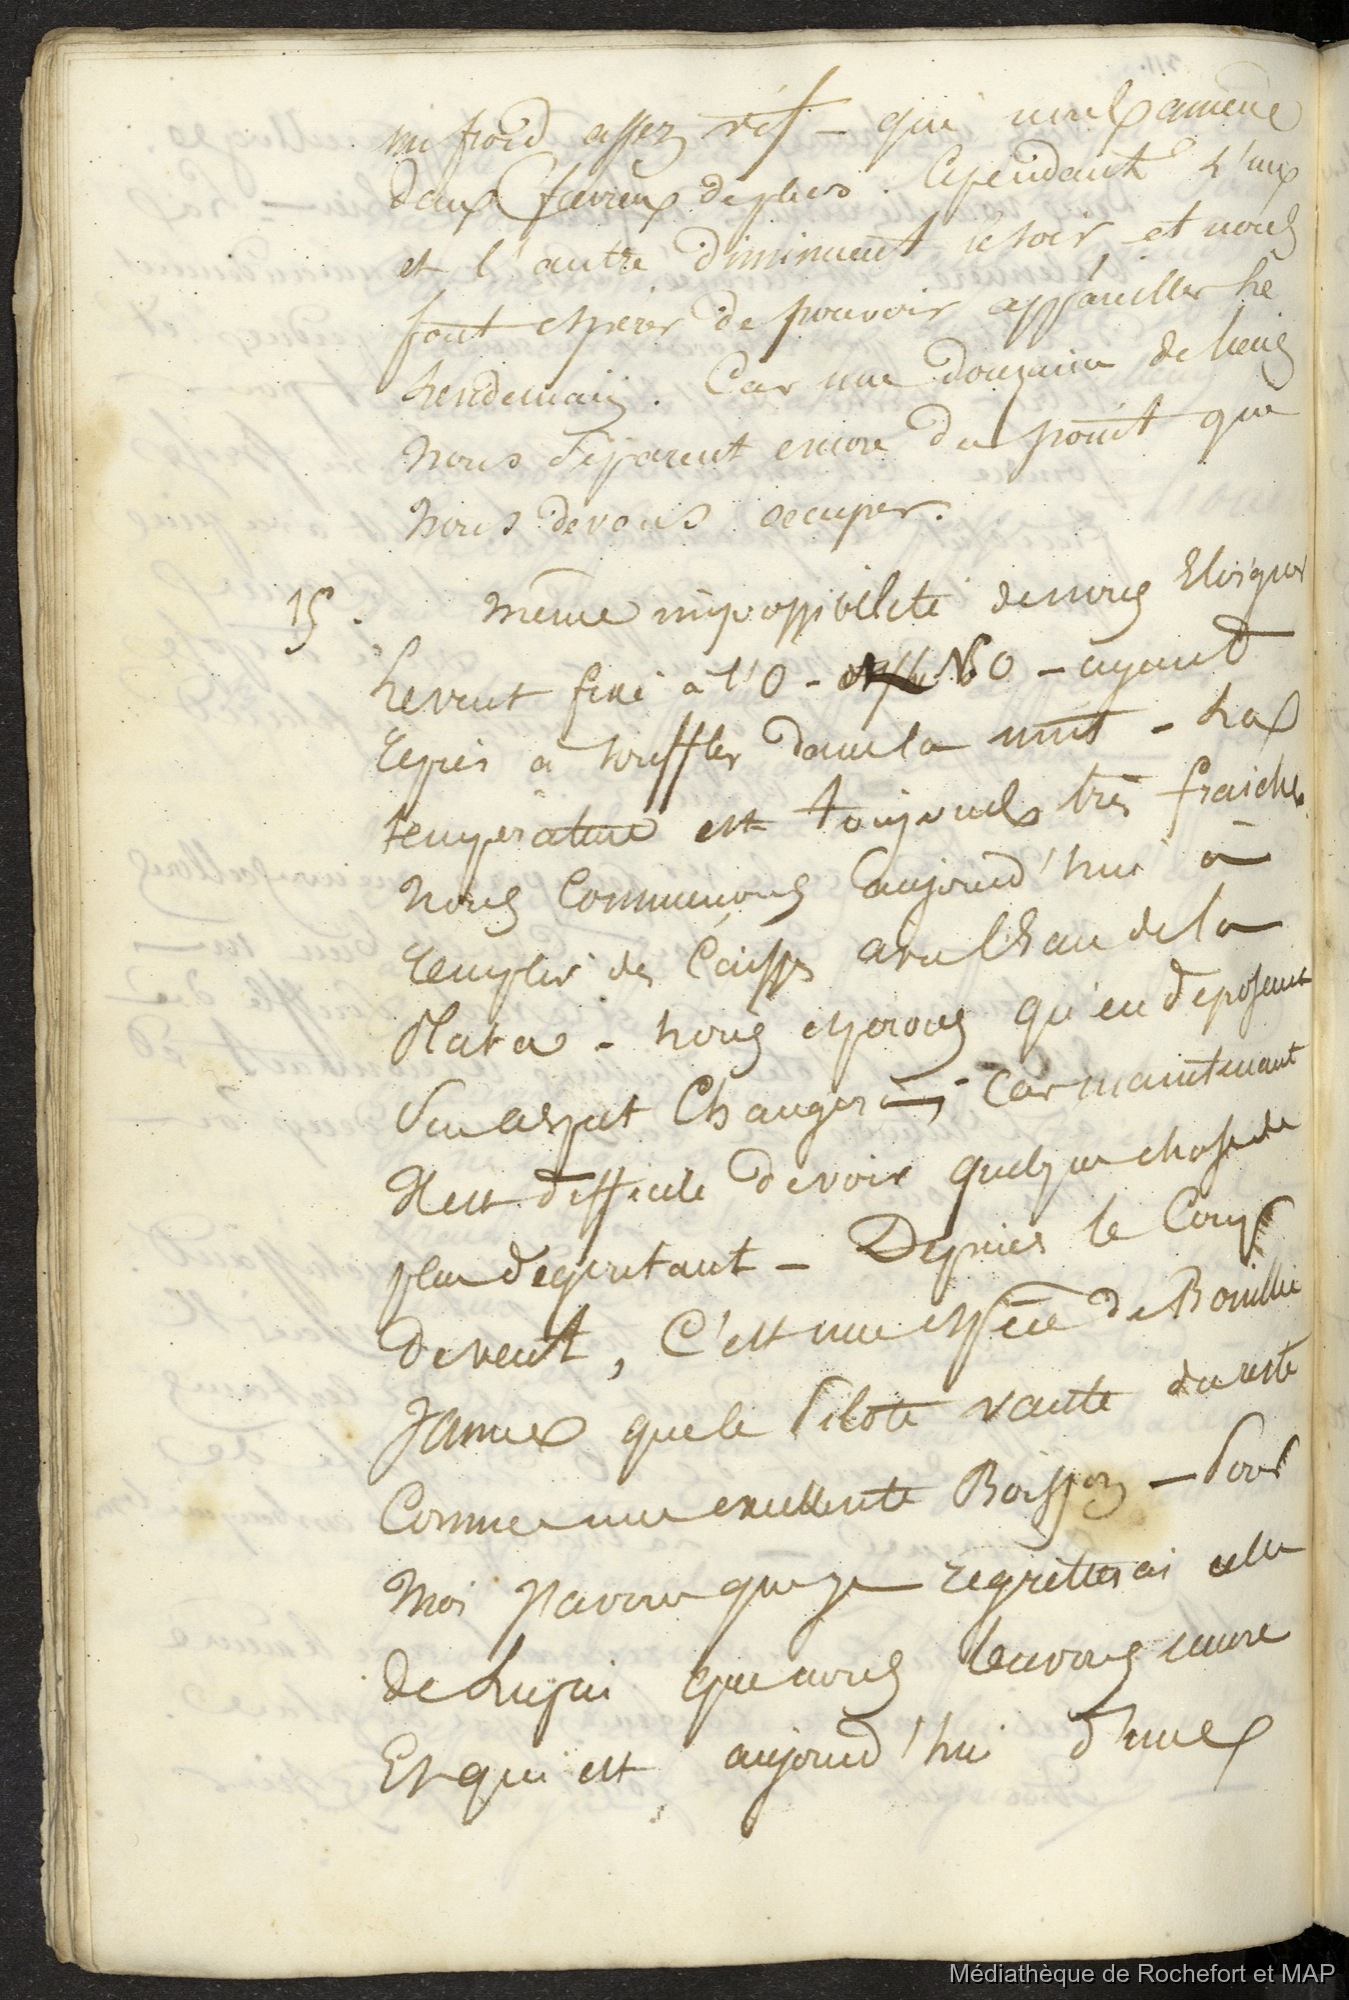 un froid assez vif - qui nous amène
deux fievreux de plus. Cependant l'un
et l'autre diminuent le soir et nous
font espérer de pouvoir appareiller le
lendemain. Car une douzaine de lieues
nous séparent encore du point que
nous devons occuper.
15. Même impossibilité de nous Eloigner
le vent fixé à l'O - NO - ayant
repris à souffler dans la nuit - La
température est toujours très fraiche.
nous Commençons aujourd'hui à
remplir des Caisses avec l'Eau de la
Plata - nous esperons qu'en déposant
Son aspect Changera; - Car maintenant
Il est difficile de voir quelque chose de
plus dégoutant - Depuis le Coup
de vent, C'est une espèce de Bouillie
Jaune que le Pilote vante du reste
Comme une excellente Boisson - Pour
Moi J'avoue que je regretterai celle
de que nous avons encore
Et qui est aujourd'hui d'une
Médiathèque de Rochefort et MAP